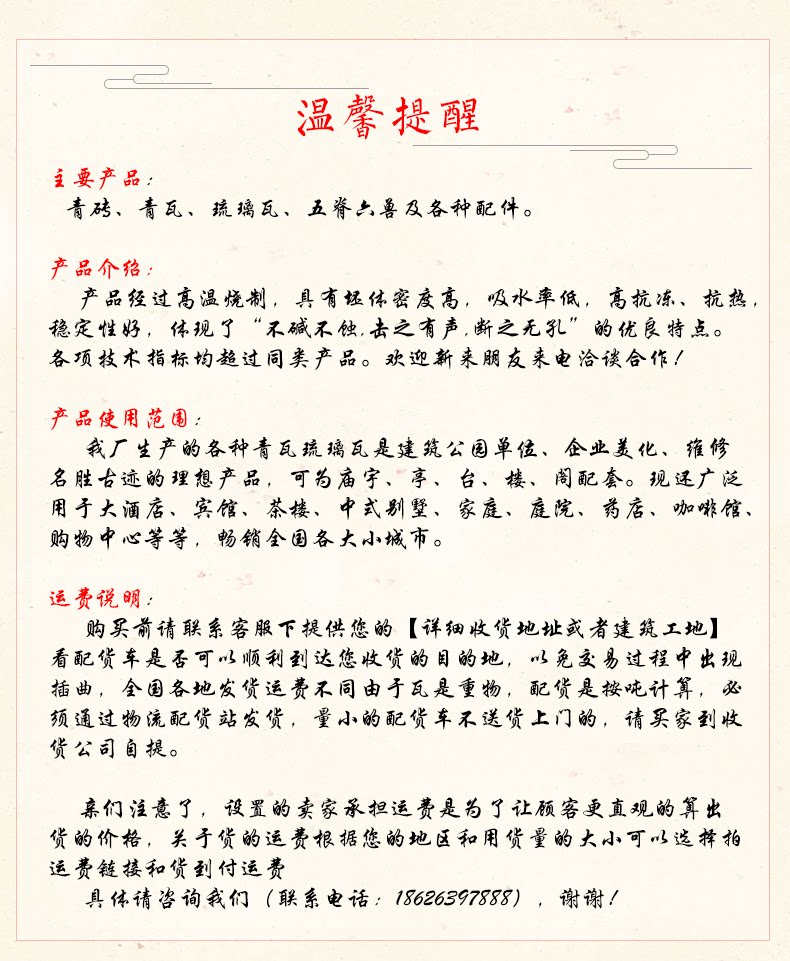 温馨提醒
主要产品：
青砖、青瓦、琉璃瓦、五脊六兽及各种配件。
产品介绍：
产品经过高温烧制，具有坯体密度高，吸水率低，高抗冻、抗热，
稳定性好，体现了“不碱不蚀,击之有声,断之无孔”的优良特点。
各项技术指标均超过同类产品。欢迎新来朋友来电洽谈合作！
产品使用范围：
我厂生产的各种青瓦琉璃瓦是建筑公园单位、企业美化、维修
名胜古迹的理想产品，可为庙宇、亭、台、楼、阁配套。现还广泛
用于大酒店、宾馆、茶楼、中式别墅、家庭、庭院、药店、咖啡馆、
购物中心等等，畅销全国各大小城市。
运费说明：
购买前请联系客服下提供您的【详细收货地址或者建筑工地】
看配货车是否可以顺利到达您收货的目的地，以免交易过程中出现
插曲，全国各地发货运费不同由于瓦是重物，配货是按吨计算，必
须通过物流配货站发货，量小的配货车不送货上门的，请买家到收
货公司自提。
亲们注意了，设置的卖家承担运费是为了让顾客更直观的算出
货的价格，关于货的运费根据您的地区和用货量的大小可以选择拍
运费链接和货到付运费
具体请咨询我们（联系电话：18626397888），谢谢！